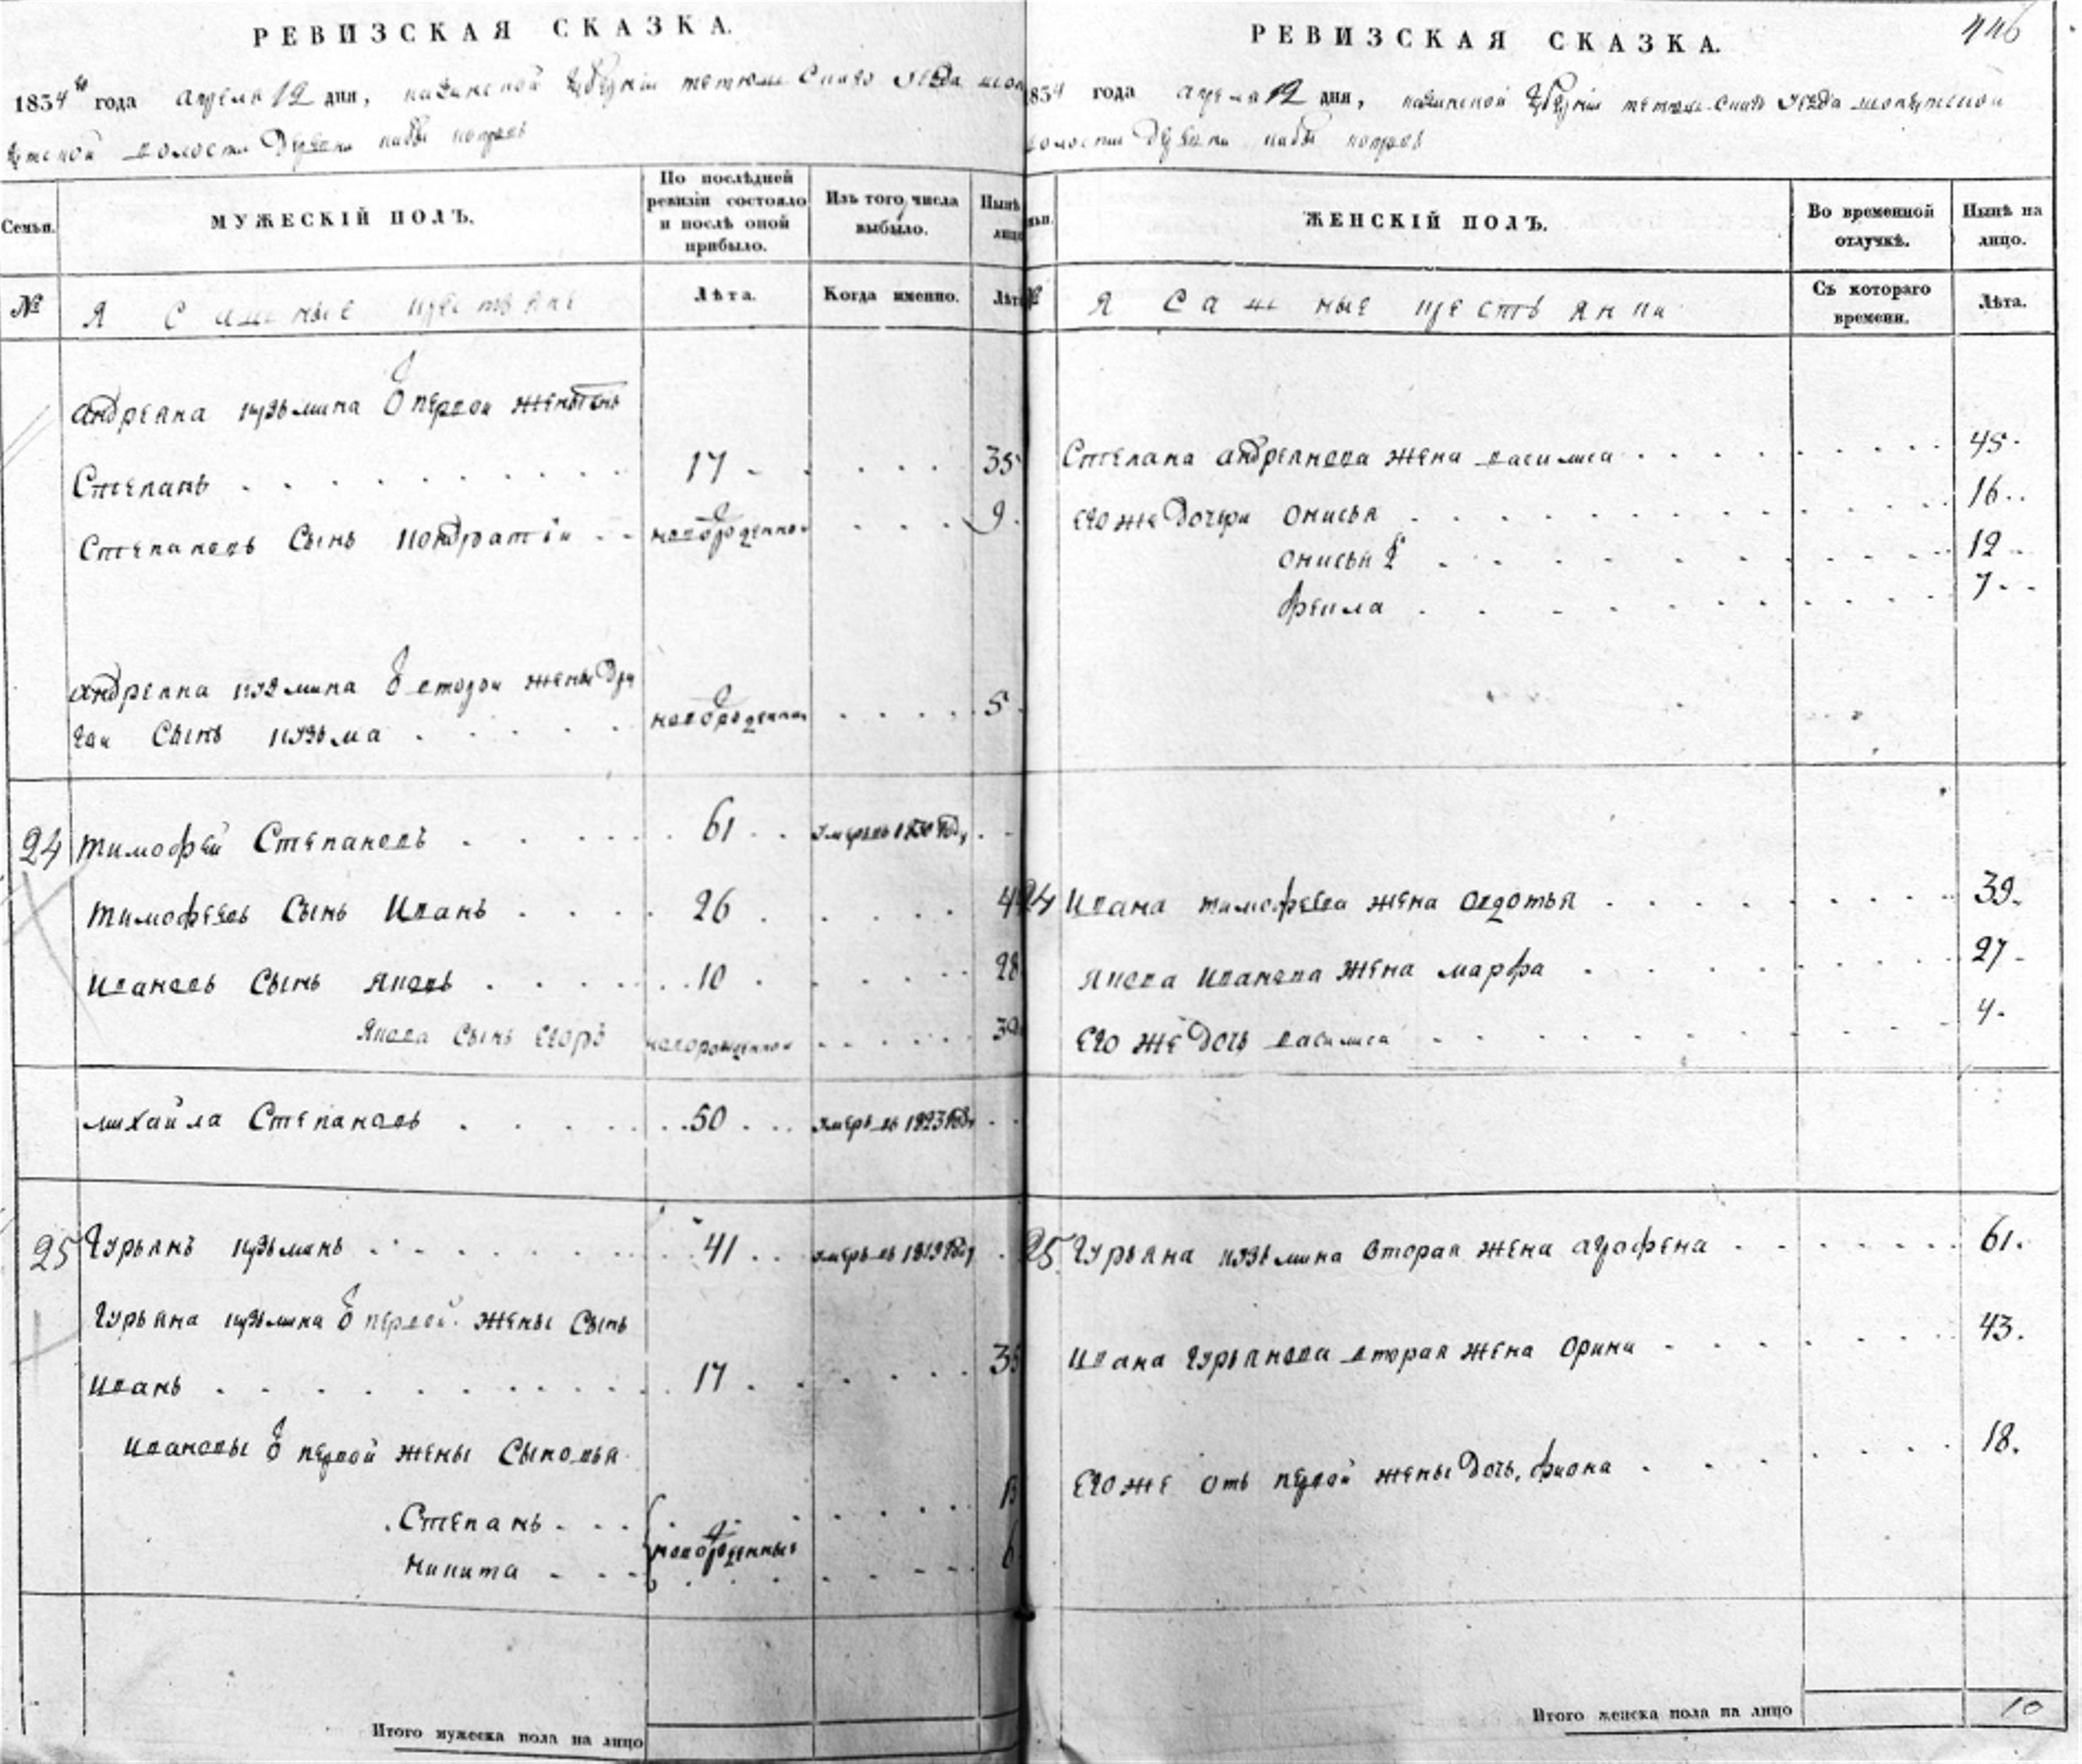 РЕВИЗСКАЯ СКАЗКА.
1834 года апреля 12 дня, казанской губернии тетюшскаго уезда
волости деревни
Семьи.
МУЖЕСКІЙ ПОЛЪ.
По послѣдней ревизіи состояло и послѣ оной прибыло.
Изъ того числа выбыло.
Нынѣ на лицо
№
Ясашные крестьяне
Лѣта.
Когда именно.
Лѣта
андреяна кузьмина о первои жены сынъ
Степанъ 17 35
Степановъ Сынъ кондратіи новорожденной 9
андреяна кузмина о второи жены дру
гои Сынъ кузьма новорожденной 5
24 тимофей Степановъ 61 умеръ въ году
тимофеевъ Сынъ Иванъ 26
Ивановъ Сынъ яковъ 10 28
якова Сынъ Егоръ новорожденной
михаила Степановъ 50 умеръ въ 1823 году
25 Гурьянъ кузьминъ 41 умеръ въ 1819 году
Гурьяна кузьмина о первой жены Сынъ
Иванъ 17 35
Ивановы о первой жены Сыновья
Степанъ
никита новорожденные 6
Итого мужеска пола на лицо
РЕВИЗСКАЯ СКАЗКА.
446
1834 года апреля 12 дня, казанской губернии тетюшскаго уезда
волости деревни
ЖЕНСКІЙ ПОЛЪ.
Во временной отлучкѣ.
Нынѣ на лицо.
№
Ясашные крестьянки
Съ котораго времени.
Лѣта.
Степана андреянова жена василиса 45
Его же дочери онисья 16
онисья 2 12
фекла 7
24 Ивана тимофеева жена авдотья 39
якова Иванова жена марфа 27
Его же дочь василиса 4
25 Гурьяна кузьмина вторая жена агрофена 61
Ивана Гурьянова вторая жена орина 43
Его же отъ первой жены дочь, фиона 18
Итого женска пола на лицо 10